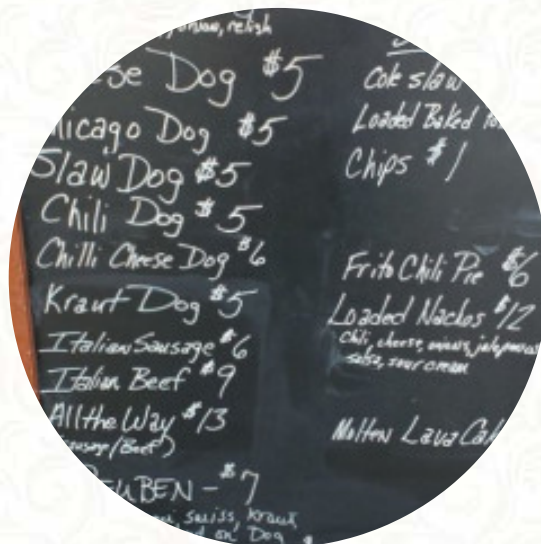 relish
Dog $5
Dog $5
Slaw Dog $5
Chili Dog $5
Chilli Cheese Dog $6
Kraut Dog $5
Italian Sausage $6
Italian Beef $9
All the Way $13
/Beef)
BEN - $7
swiss, kraut
on Dog
Cole slaw
Loaded Baked
Chips $1
Frito Chili Pie $6
Loaded Nachos $12
chili, cheese, onions, jalapenos
salsa, sour cream
Molten Lava